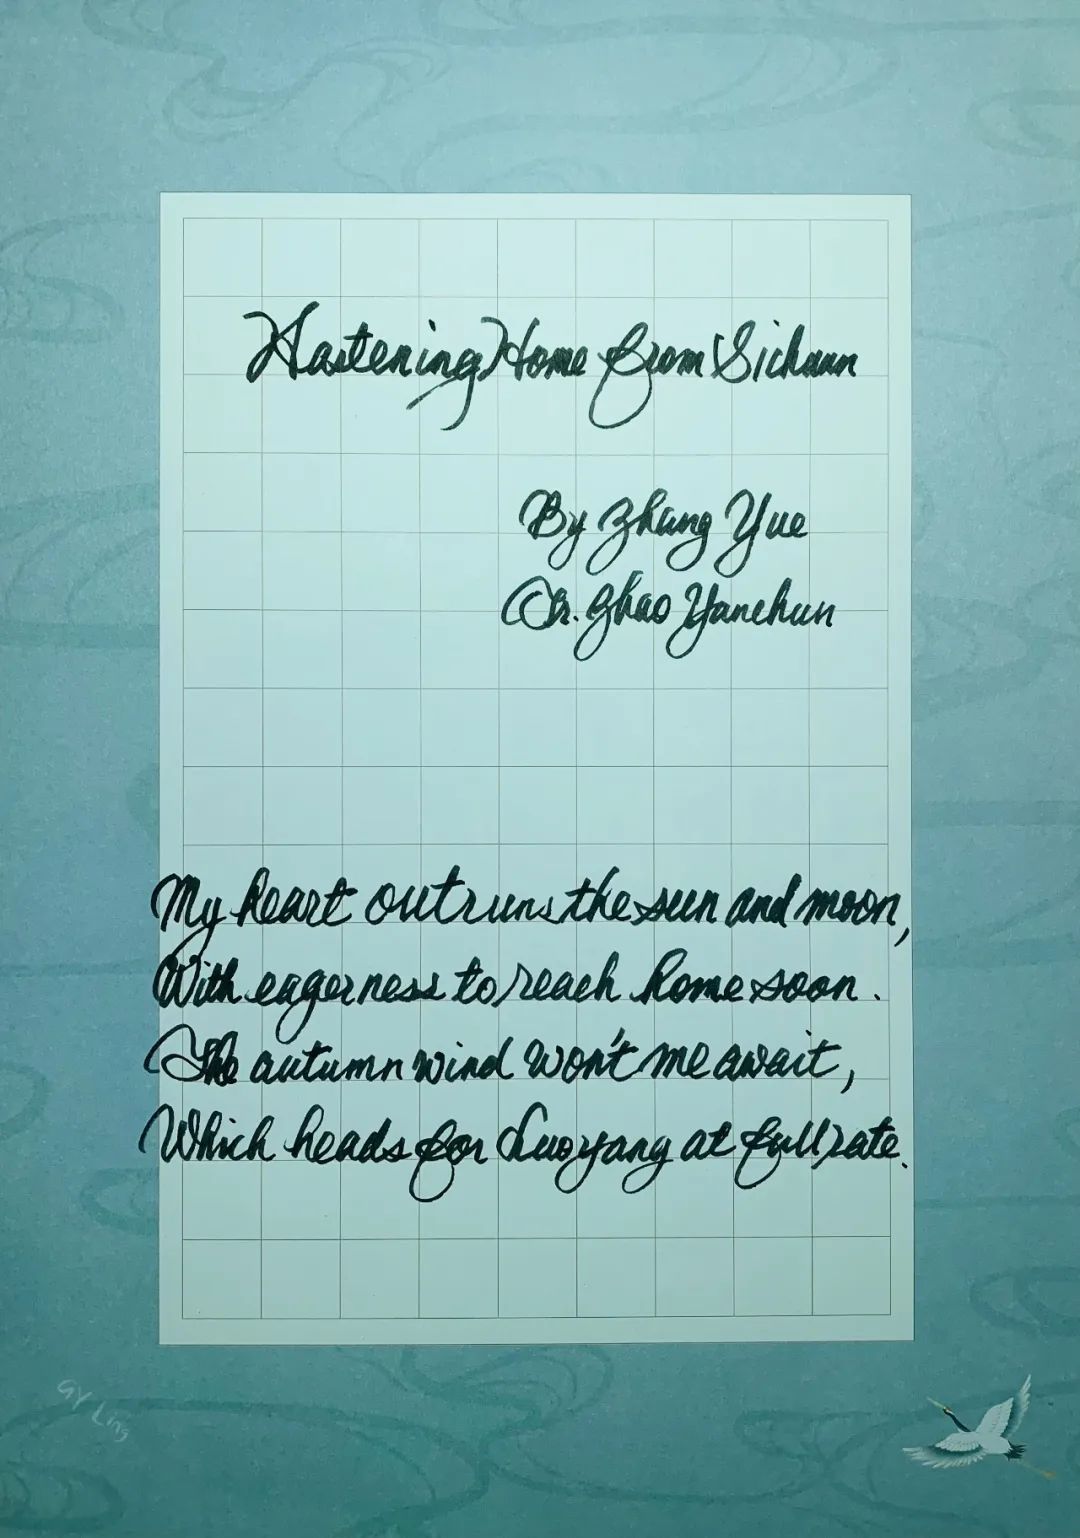 Hastening Home from Sichuan
By Zhang Yue
Tr. Zhao Yanchun
My heart outruns the sun and moon,
With eagerness to reach home soon.
The autumn wind won't me await,
Which heads for Luoyang at full rate.
GY Ling